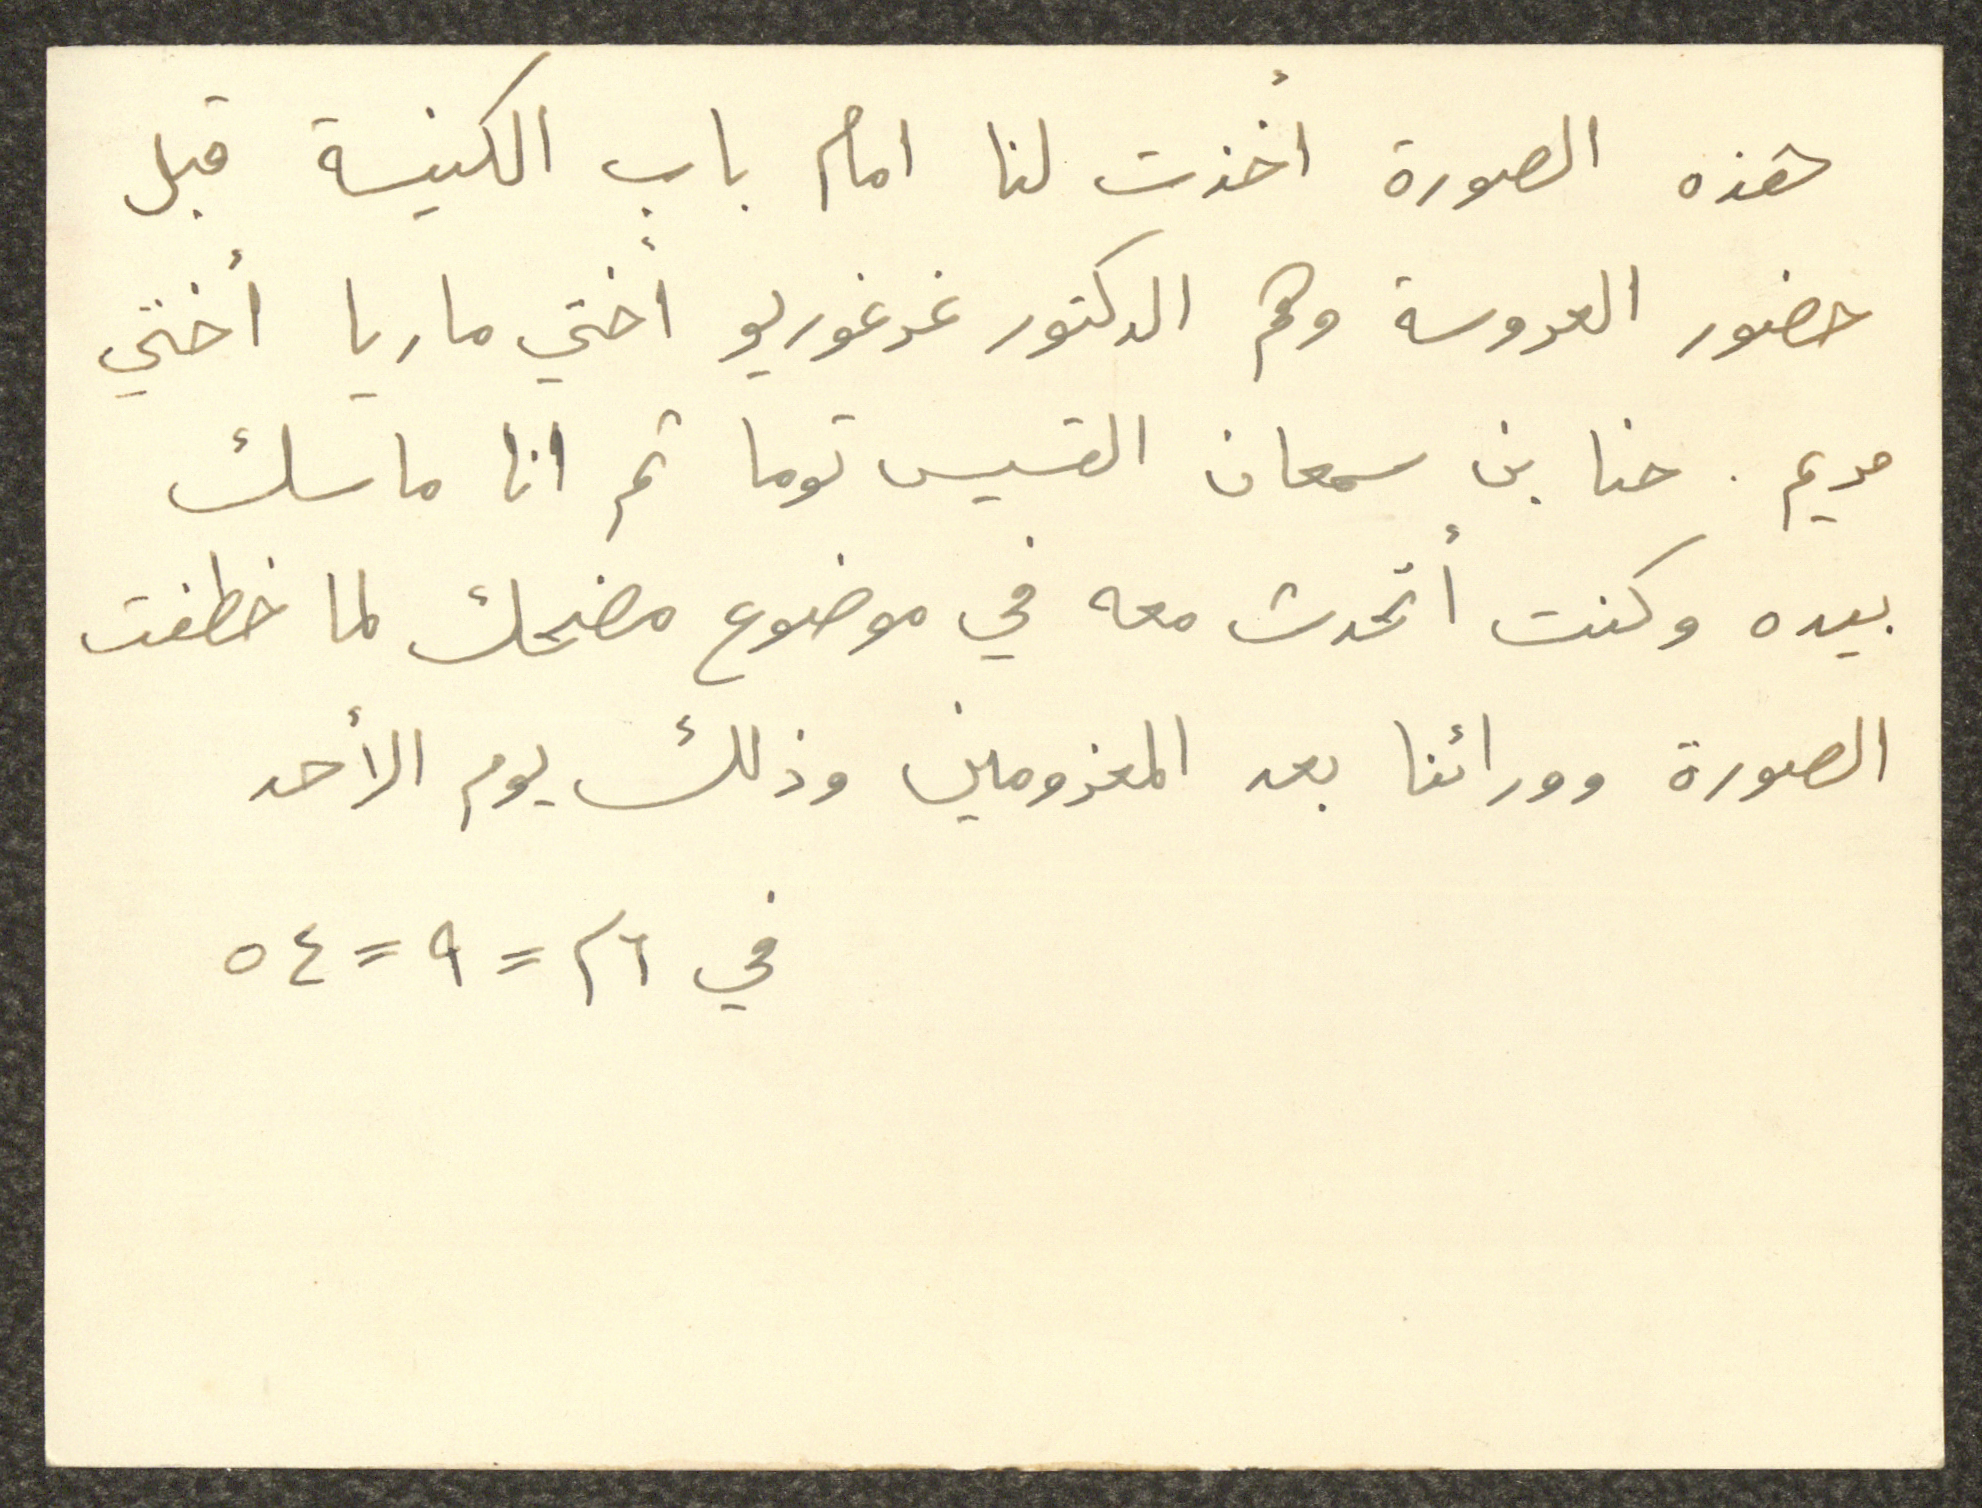 هذه الصورة أخذت لنا امام باب الكنيسة قبل
حضور العروسة وهم الدكتور غرغوريو أختي ماريا أختي
مريم . حنا بن سمعان القسيس توما ثم انا ماسك
بيده وكنت أتحدث معه في موضوع مضحك لما خطفت
الصورة وورائنا بعد المعزومين وذلك يوم الأحد
في ٢٦ = ٩ = ٥٤